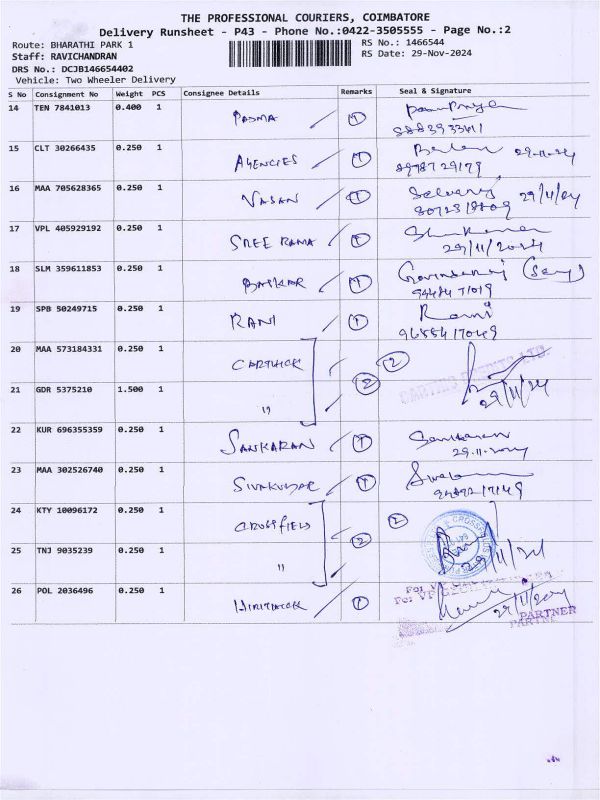 THE PROFESSIONAL COURIERS, COIMBATORE
Delivery Runsheet - P43 - Phone No.:0422-3505555 - Page No.:2
Route: BHARATHI PARK 1 RS No.: 1466544
Staff: RAVICHANDRAN RS Date: 29-Nov-2024
DRS No.: DCJB146654402
Vehicle: Two Wheeler Delivery
S No Consignment No Weight PCS Consignee Details Remarks Seal & Signature
14 TEN 7841013 0.400 1 PADMA 1
15 CLT 30266435 0.250 1 AGENCIES 1 29-11-24
8978729179
16 MAA 705628365 0.250 1 VASAN 1 29/11/24
17 VPL 405929192 0.250 1 SREE RAMA 1
29/11/2024
18 SLM 359611853 0.250 1 BASKAR 1
19 SPB 50249715 0.250 1 RANI 1 Rani
9655417049
20 MAA 573184331 0.250 1 CARTHICK 2
21 GDR 5375210 1.500 1 " 2 29/11/24
22 KUR 696355359 0.250 1 SANKARAN 1 Sankaran
29.11.2024
23 MAA 302526740 0.250 1 SIVAKUMAR 1
24 KTY 10096172 0.250 1 CROSSFIELD 2
25 TNJ 9035239 0.250 1 " 2 29/11/24
26 POL 2036496 0.250 1 1 29/11/2024
PARTNER